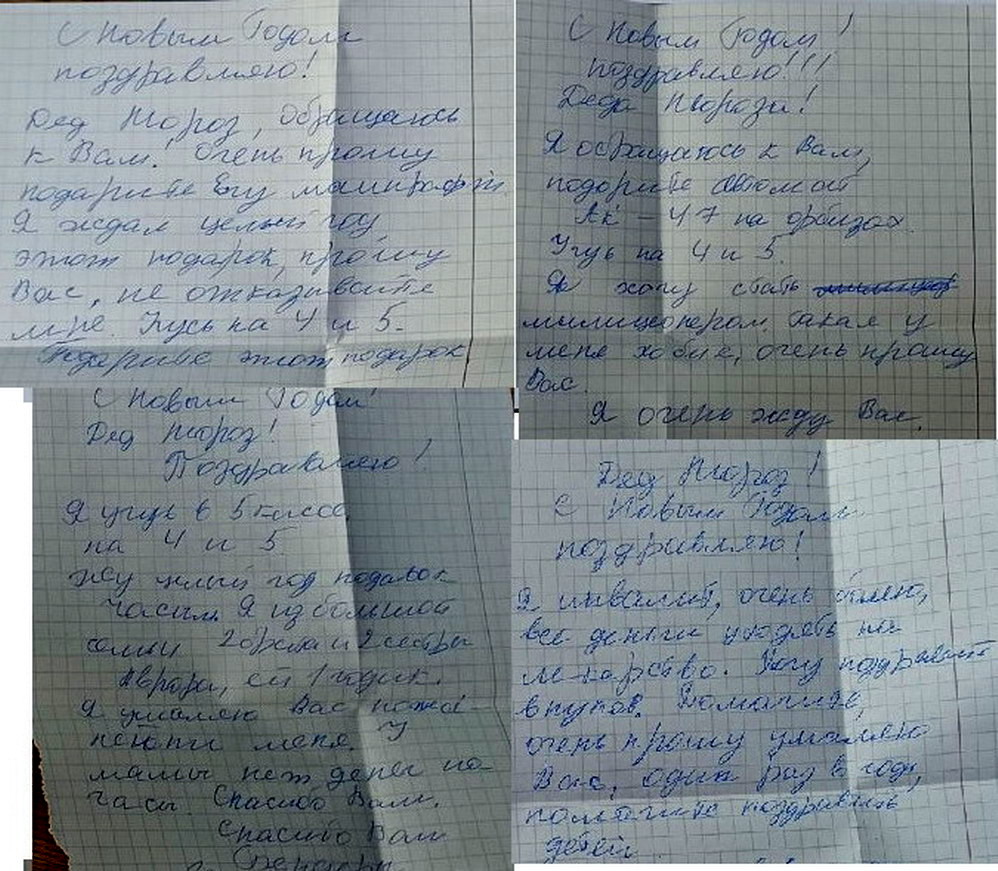 С Новым Годом
поздравляю!
Дед Мороз, обращаюсь
к Вам! Очень прошу
подарите Егу маинкрафт
Я ждал целый году
этот подарок, прошу
Вас, не отказывайте
мне. Учусь на 4 и 5.
Подарите этот подарок
С Новым Годом!
поздравляю!!!
Деда Мороза!
Я обращаюсь к Вам,
подорите автомат
Ак - 47 на орбизах.
Учусь на 4 и 5.
Я хочу стать
милиционером. Такая у
меня хобие, очень прошу
Вас.
Я очень жду Вас.
С Новым Годом!
Дед Мороз!
Поздравляю!
Я учусь в 5 классе
на 4 и 5
жду целый год подарок
часы. Я из большой
семьи 2 брата и 2 сестры
Аврора, ей 1 годик.
Я умоляю Вас
меня. У
мамы нет денег на
часы. Спасибо Вам.
Спасибо Вам
Дед Мороз!
С Новым Годом
поздравляю!
Я инвалит, очень болею,
все деньги уходять на
лекарство. Хочу поздравит
внуков. Помогите,
очень прошу умаляю
Вас, один раз в году,
помогите поздравить
детей